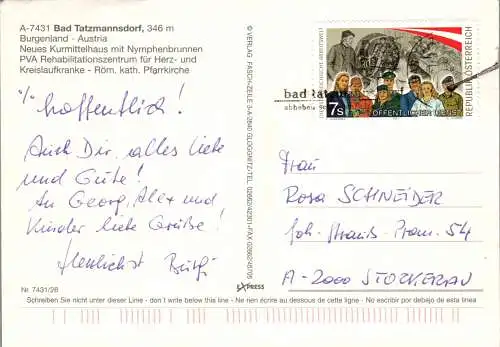 A-7431 Bad Tatzmannsdorf, 346 m
Burgenland - Austria
Neues Kurmittelhaus mit Nymphenbrunnen
PVA Rehabilitationszentrum für Herz- und
Kreislaufkranke - Röm. kath. Pfarrkirche
hoffentlich!
Auch Dir, alles Liebe
und Gute!
An Georg, Alex und
Kinder liebe Grüße!
Herzlichst Burgi
Nr. 7431/26
Schreiben Sie nicht unter dieser Linie - don´t write below this line - Ne rien écrire au dessous de cette ligne - No escribir por debajo de esta linea
© VERLAG FASCH-ZEILE
EXPRESS
REPUBLIK ÖSTERREICH
7s
ÖFFENTLICHER DIENST
bad
Frau
Rosa SCHNEIDER
Joh. Strauß-Prom. 54
A-2000 STOCKERAU